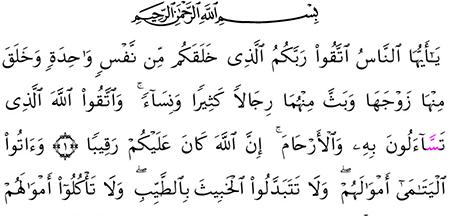 بِسْمِ ٱللَّهِ ٱلرَّحْمَٰنِ ٱلرَّحِيمِ
يَٰٓأَيُّهَا ٱلنَّاسُ ٱتَّقُوا۟ رَبَّكُمُ ٱلَّذِى خَلَقَكُم مِّن نَّفْسٍ وَٰحِدَةٍ وَخَلَقَ
مِنْهَا زَوْجَهَا وَبَثَّ مِنْهُمَا رِجَالًا كَثِيرًا وَنِسَآءً ۚ وَٱتَّقُوا۟ ٱللَّهَ ٱلَّذِى
تَسَّآءَلُونَ بِهِۦ وَٱلْأَرْحَامَ ۚ إِنَّ ٱللَّهَ كَانَ عَلَيْكُمْ رَقِيبًا ﴿١﴾ وَءَاتُوا۟
ٱلْيَتَٰمَىٰٓ أَمْوَٰلَهُمْ ۖ وَلَا تَتَبَدَّلُوا۟ ٱلْخَبِيثَ بِٱلطَّيِّبِ ۖ وَلَا تَأْكُلُوٓا۟ أَمْوَٰلَهُمْ